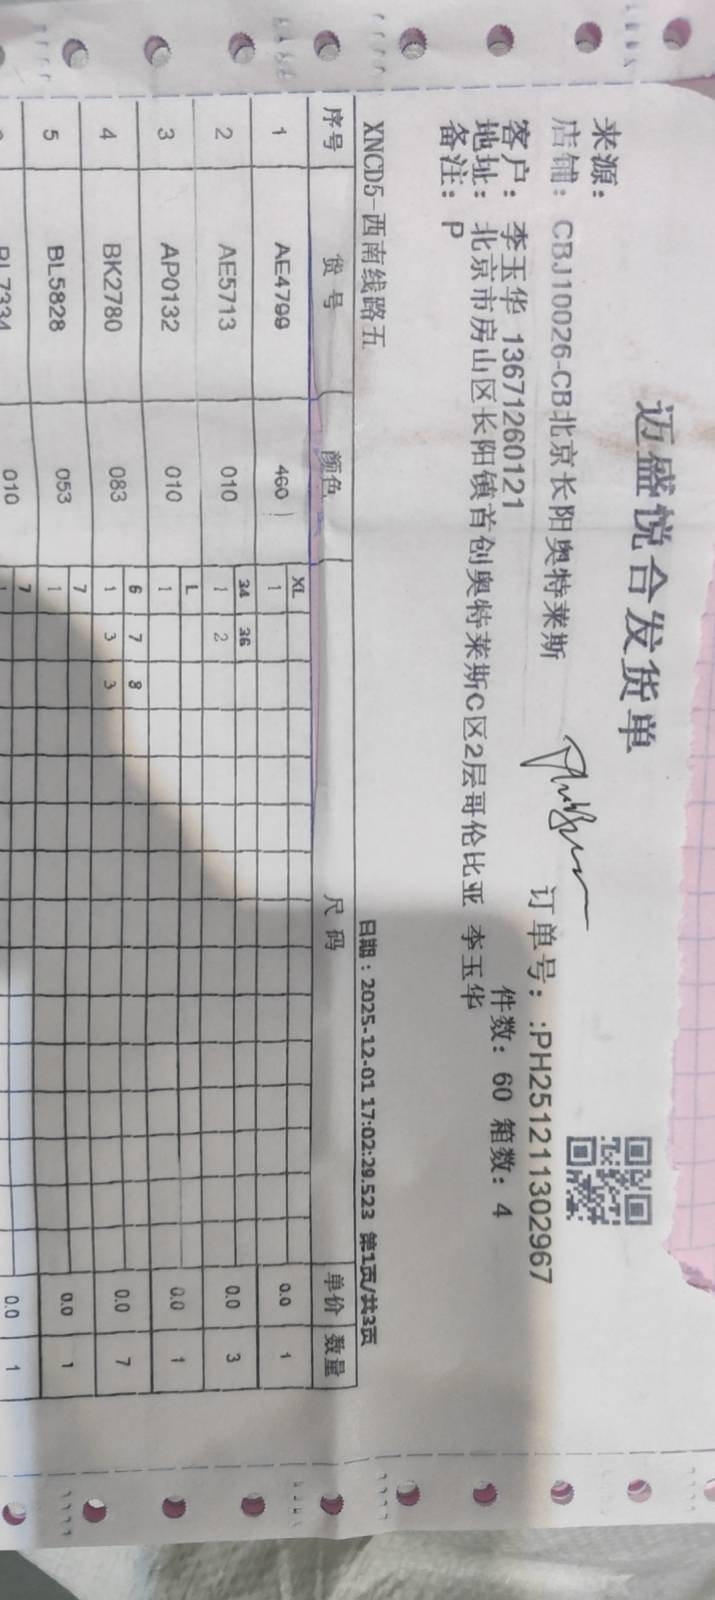 迈盛悦合发货单
来源:
店铺: CBJ10026-CB北京长阳奥特莱斯 订单号: :PH251211302967
客户: 李玉华 13671260121 件数: 60 箱数: 4
地址: 北京市房山区长阳镇首创奥特莱斯C区2层哥伦比亚 李玉华
备注: P
XNCD5-西南线路五 日期: 2025-12-01 17:02:29.523 第1页/共3页
序号 货号 颜色 尺码 单价 数量
XL
1 AE4799 460 1 0.0 1
34 36
2 AE5713 010 1 2 0.0 3
L
3 AP0132 010 1 0.0 1
6 7 8
4 BK2780 083 1 3 3 0.0 7
7
5 BL5828 053 1 0.0 1
7
BL7334 010 1 0.0 1